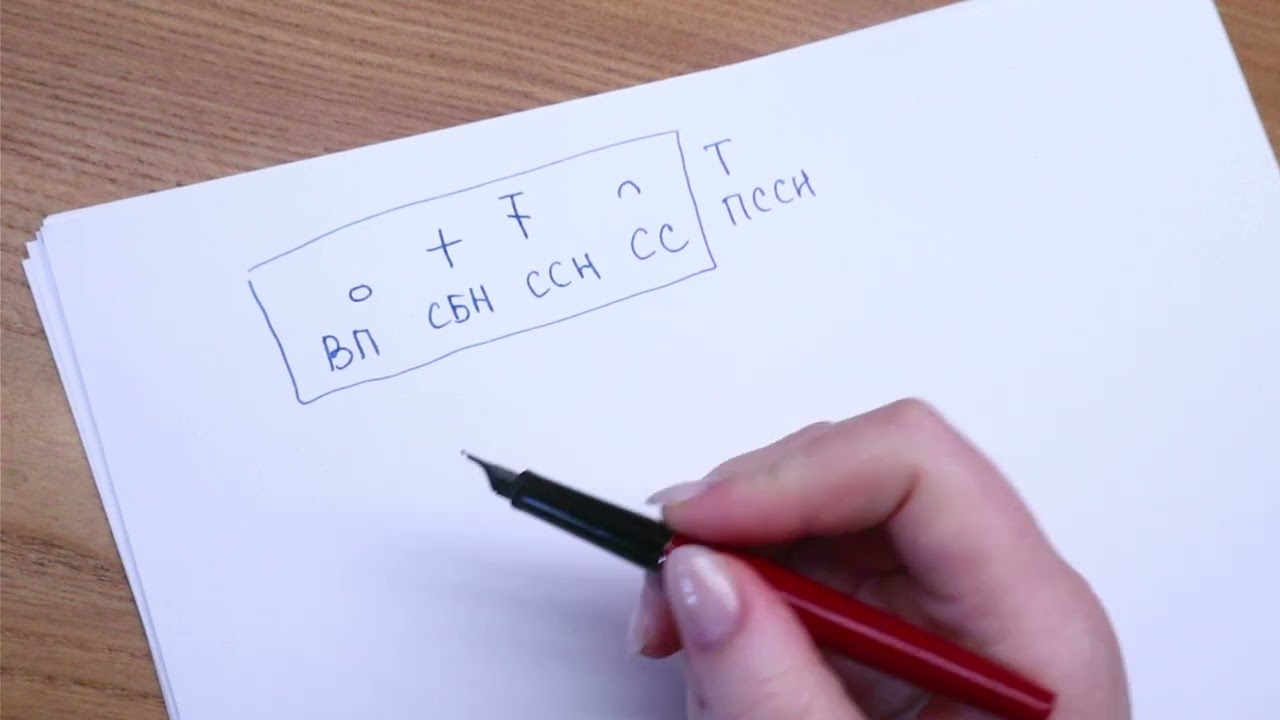 о + Ŧ ᴖ Т
ВП СБН ССН СС ПССН